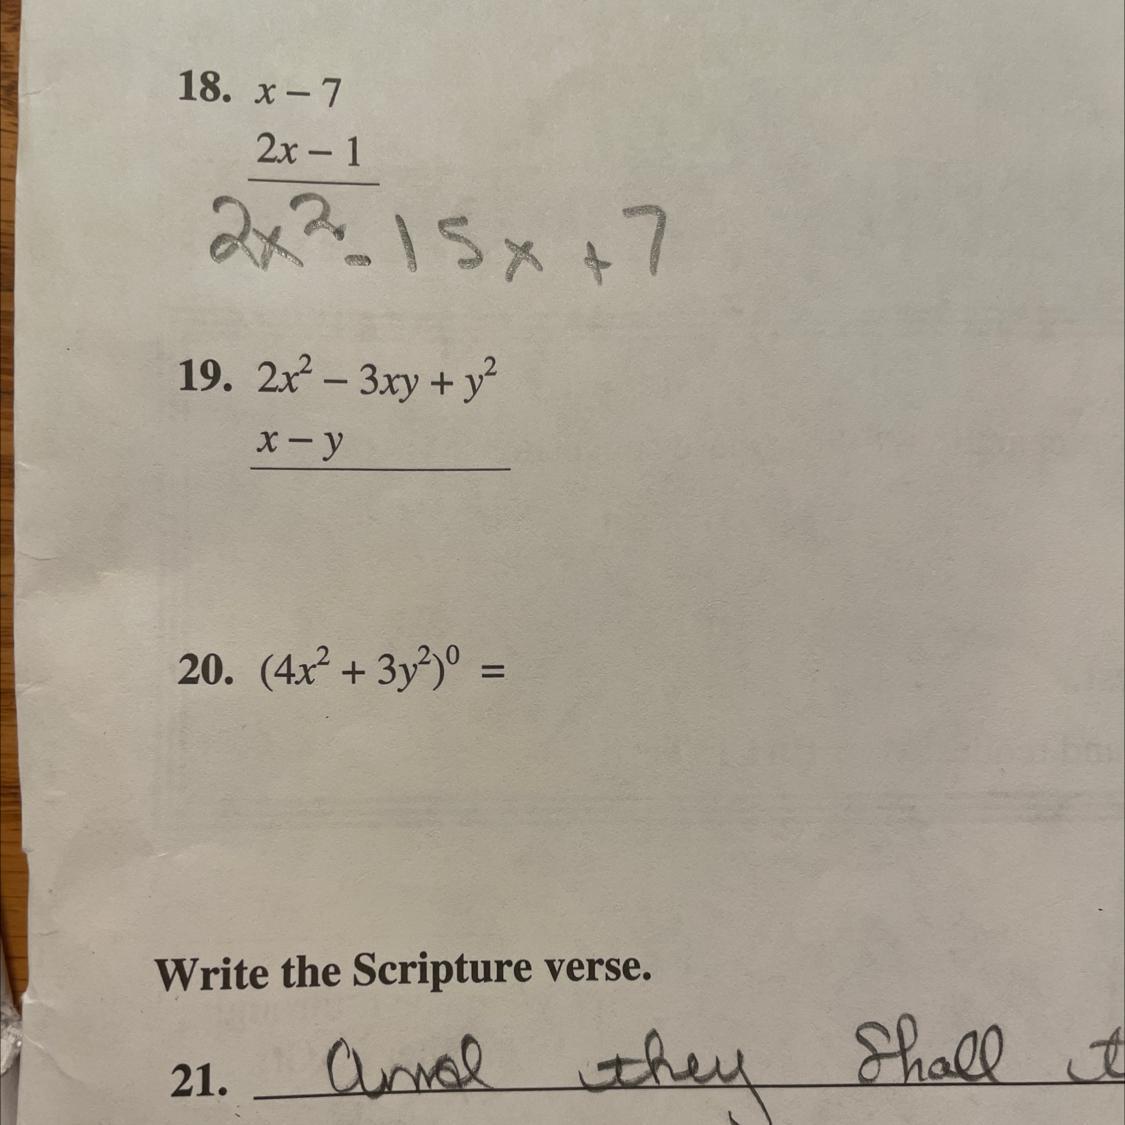 18. x − 7
2x − 1
2x² - 15x + 7
19. 2x² − 3xy + y²
x − y
20. (4x² + 3y²)⁰ =
Write the Scripture verse.
21. And they Shall